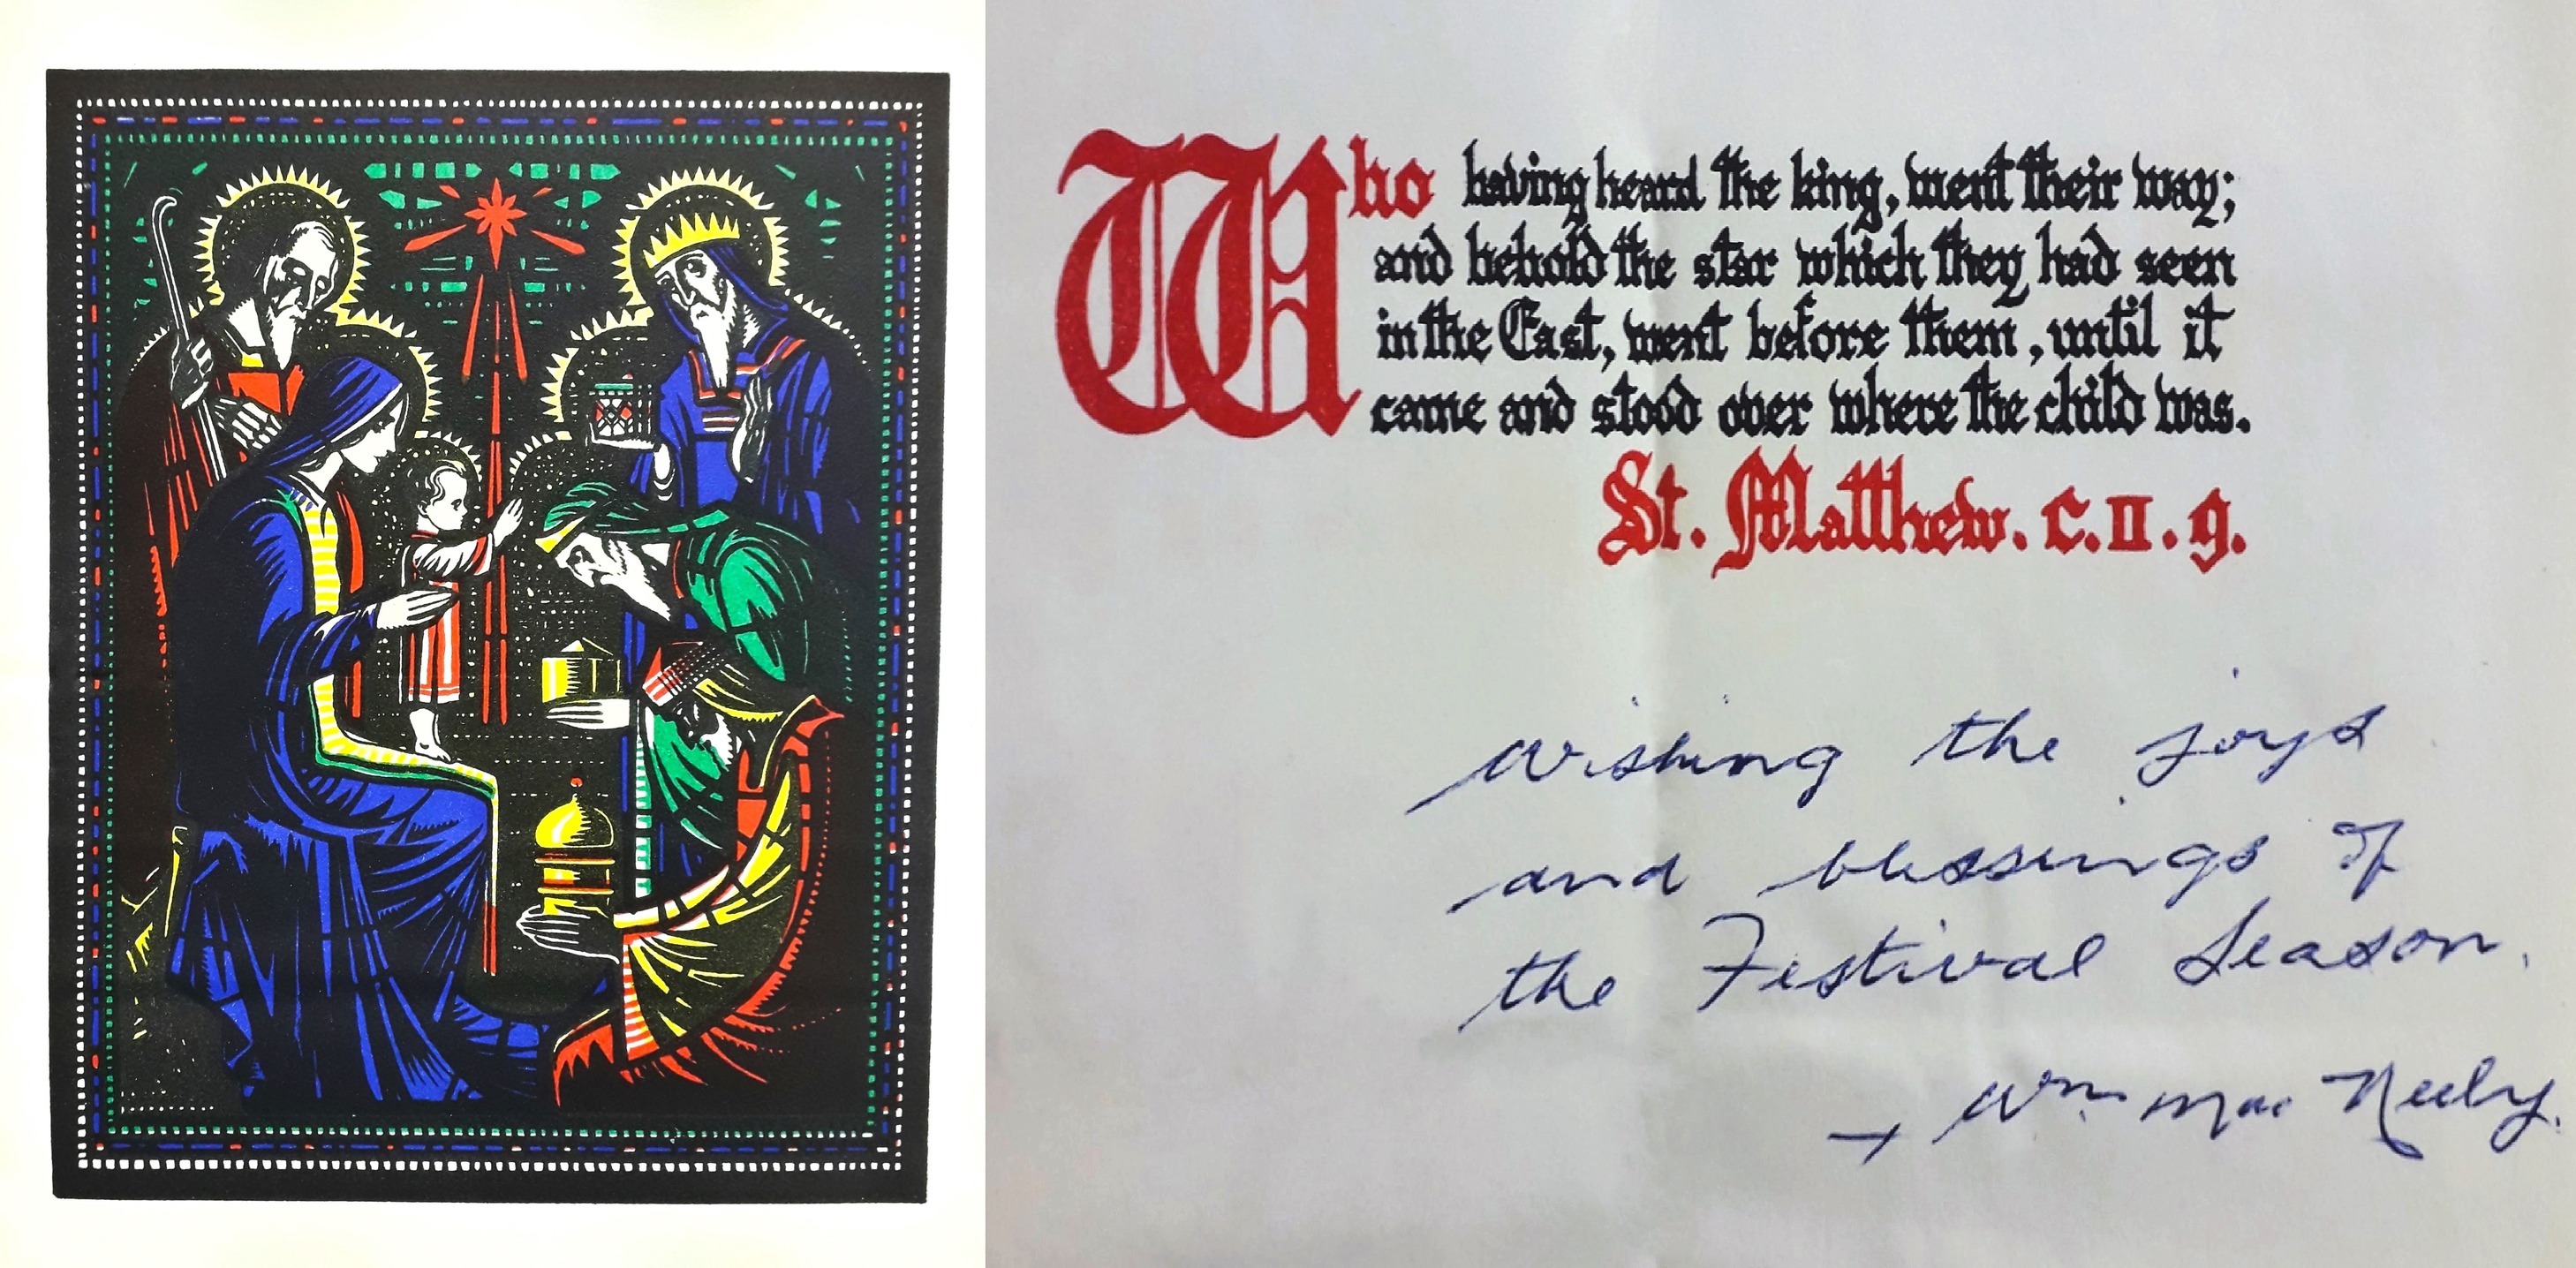 Who having heard the king, went their way;
and behold the star which they had seen
in the East, went before them, until it
came and stood over where the child was.
St. Matthew. C. II. 9.
Wishing the joys
and blessings of
the Festival Season.
+ Wm Mac Neely.